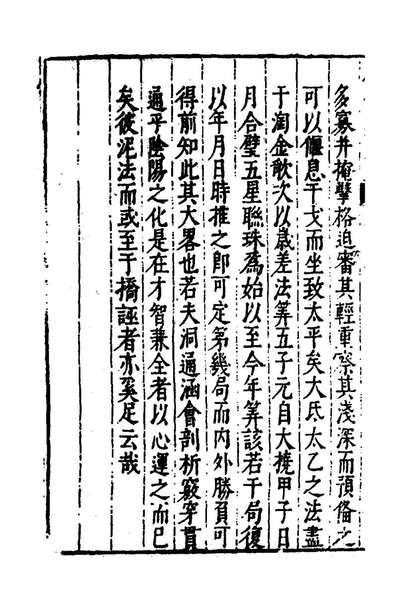 多寡并掩擊格迫審其輕重察其淺深而預備之
可以偃息干戈而坐致太平矣大氐太乙之法盡
于淘金歌次以歲差法筭五子元自大撓甲子日
月合璧五星聯珠爲始以至今年筭該若干局復
以年月日時推之即可定第幾局而内外勝負可
得前知此其大畧也若夫洞通涵會剖析竅穿貫
通乎陰陽之化是在才智兼全者以心運之而已
矣彼泥法而或至于撟誣者亦奚足云哉